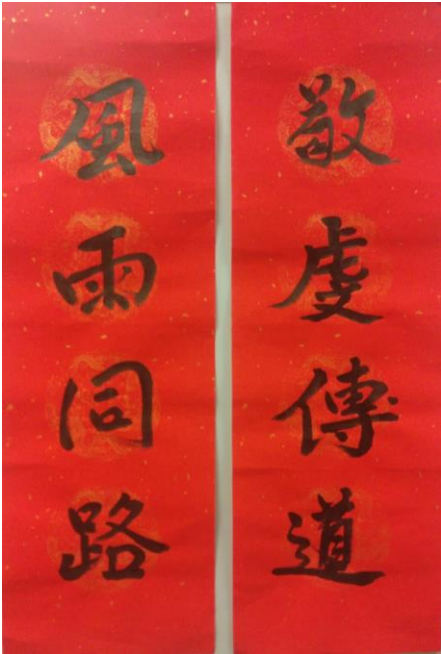 敬虔傳道
風雨同路